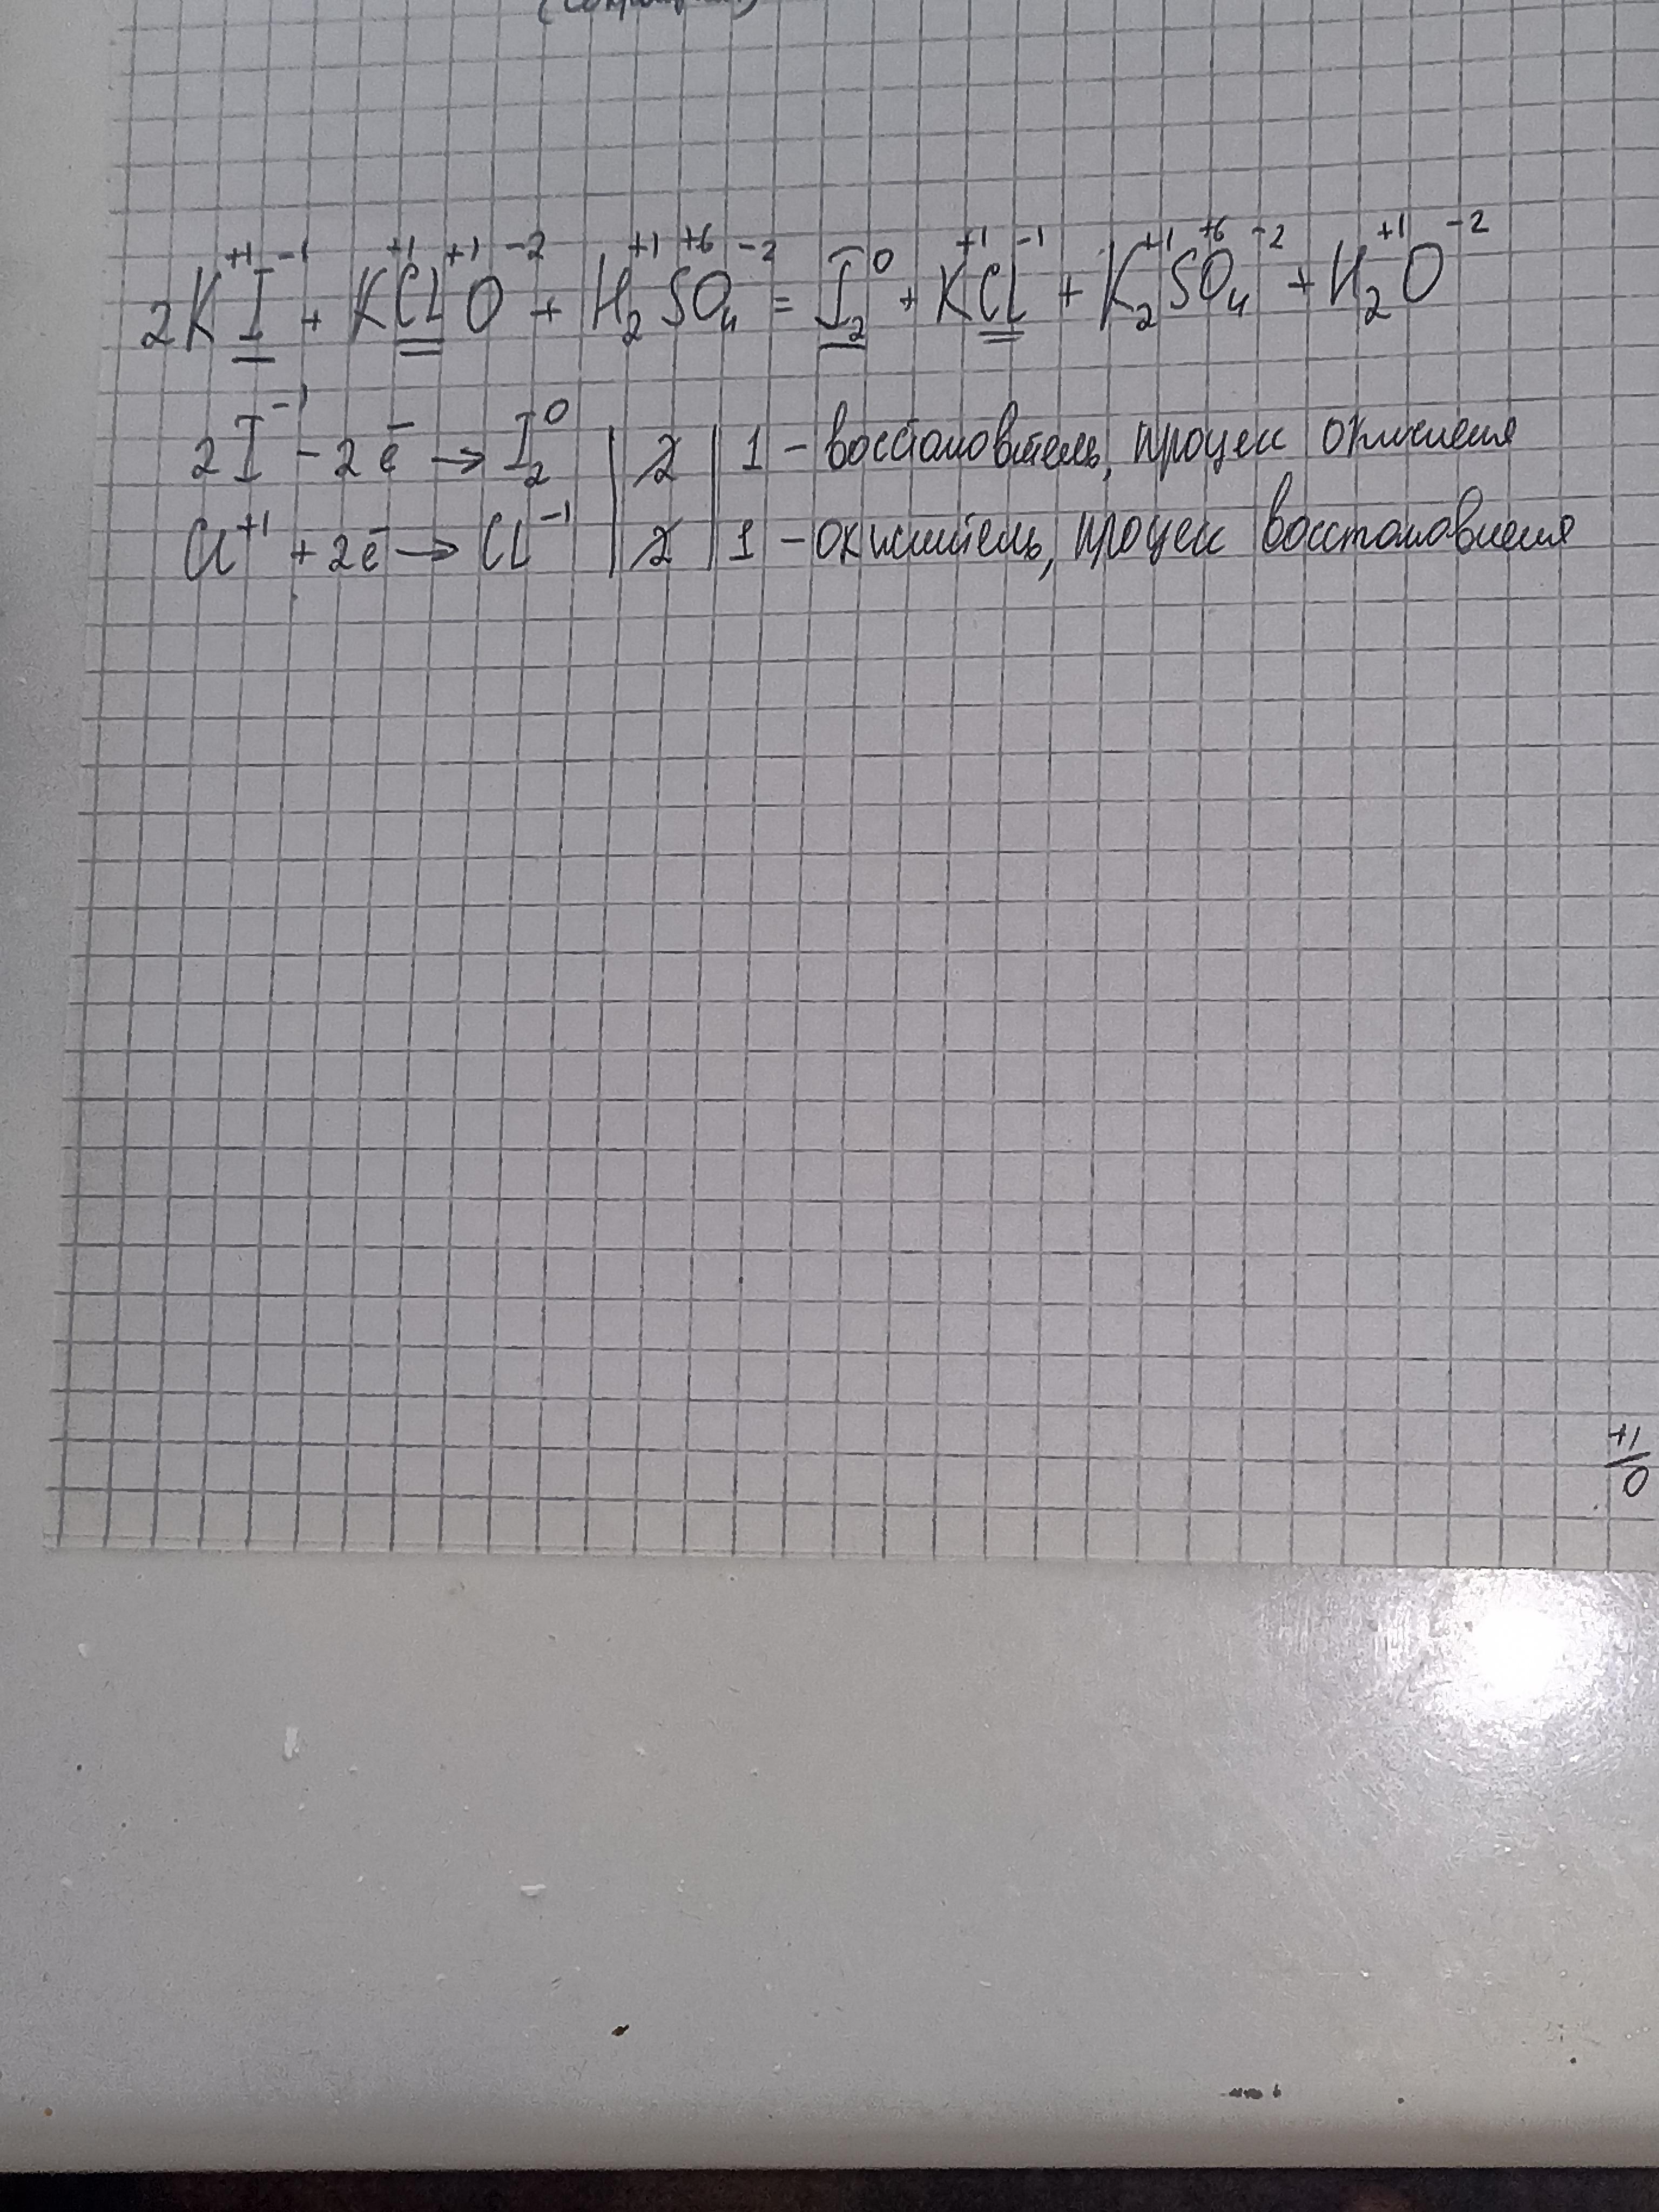 2K⁺¹I⁻¹ + K⁺¹Cl⁺¹O⁻² + H₂⁺¹S⁺⁶O₄⁻² = I₂⁰ + K⁺¹Cl⁻¹ + K₂⁺¹S⁺⁶O₄⁻² + H₂⁺¹O⁻²
2I⁻¹ - 2ē → I₂⁰ | 2 | 1 - восстановитель, процесс окисления
Cl⁺¹ + 2ē → Cl⁻¹ | 2 | 1 - окислитель, процесс восстановления
+1/0